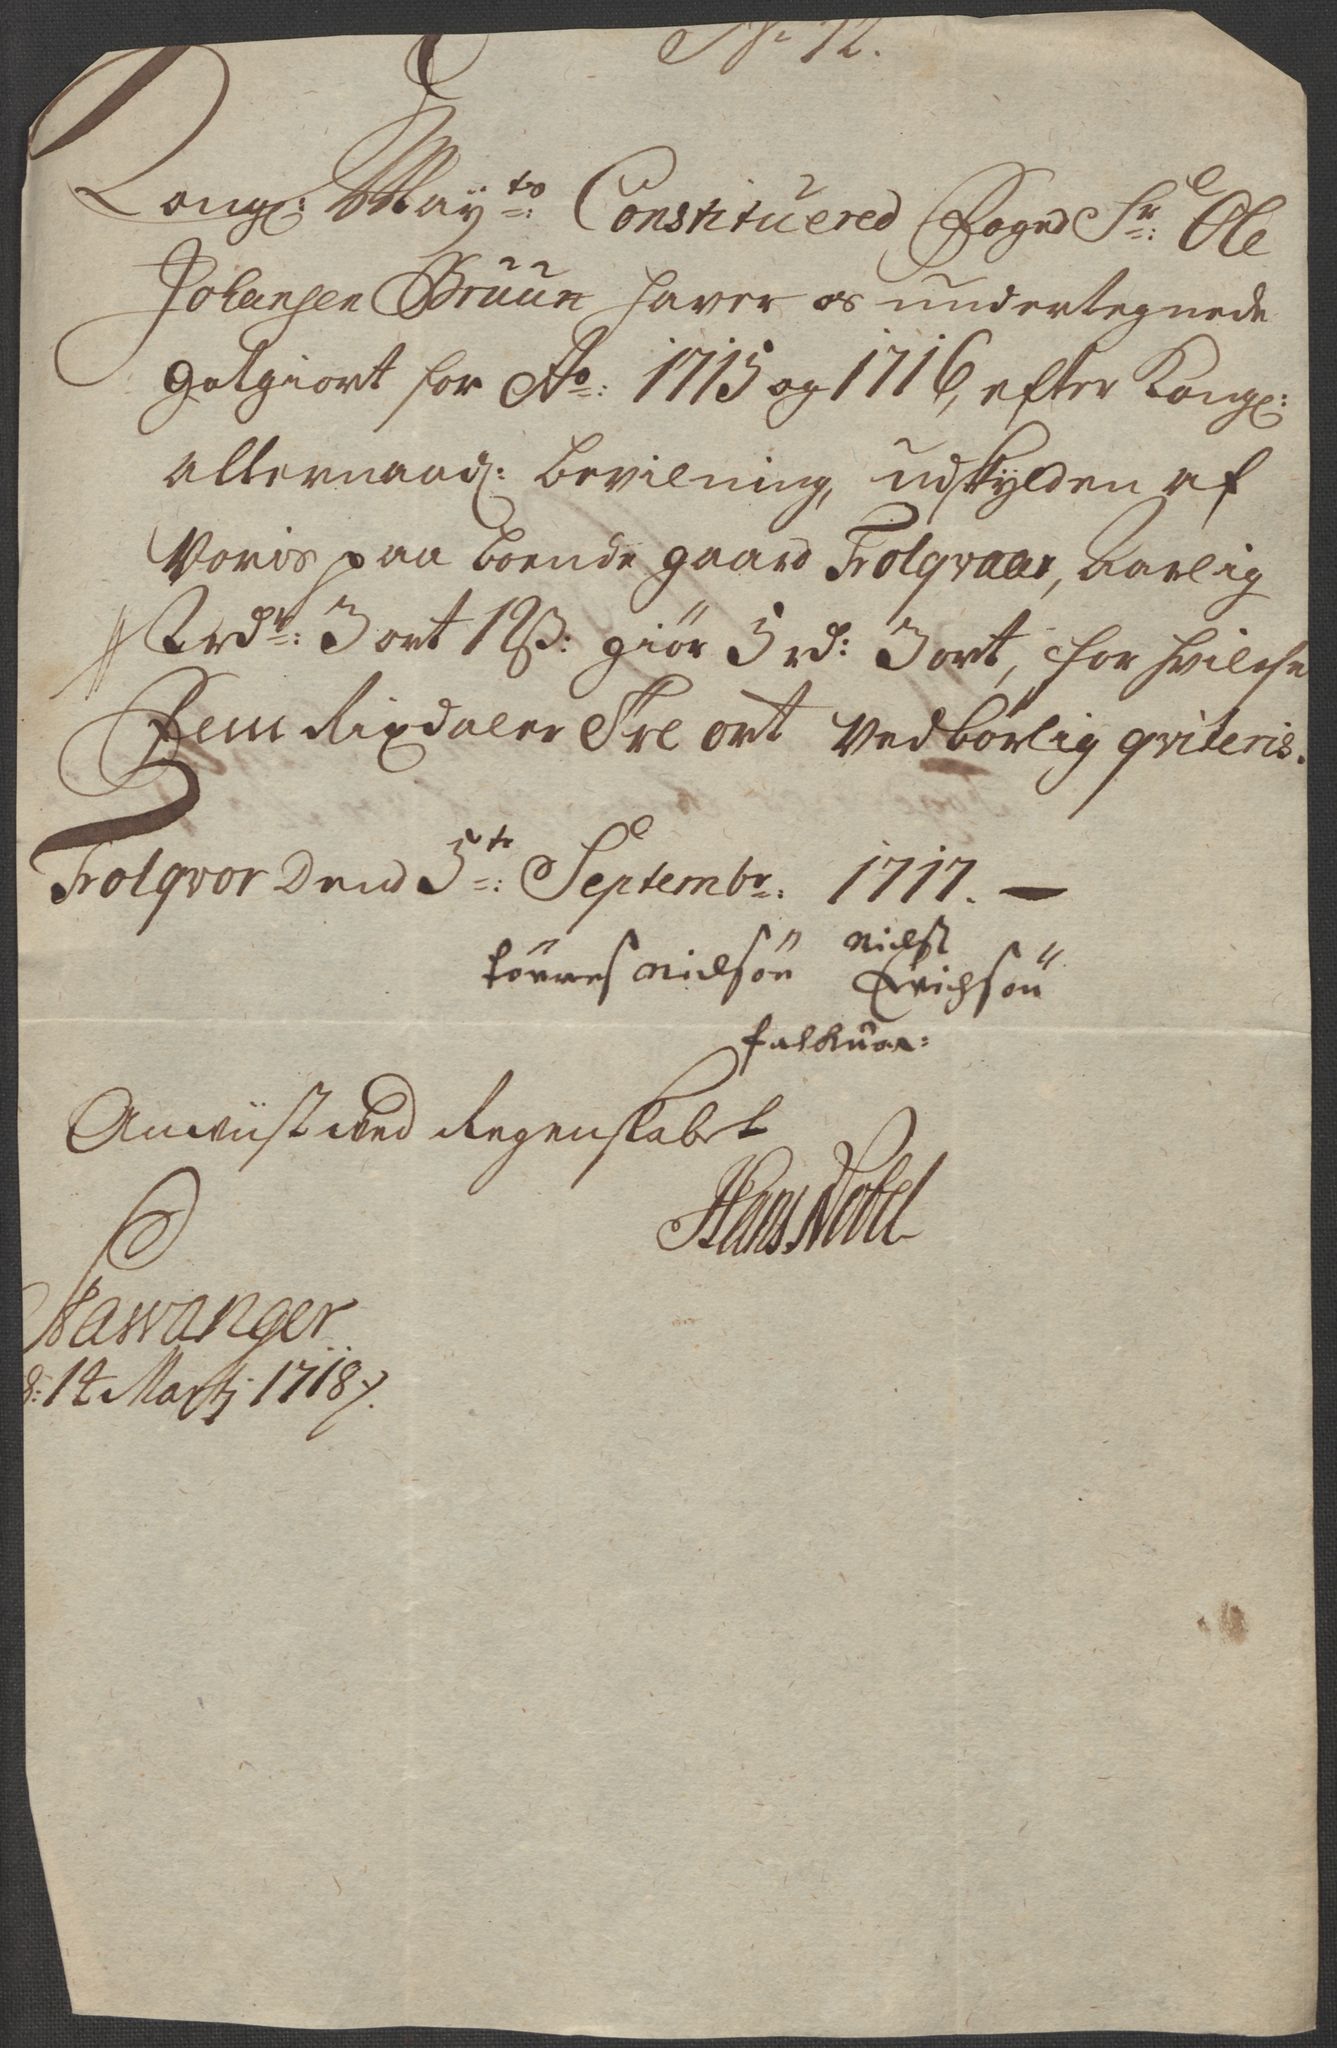 No 12.
Kongl: Mayts: Constituered Foged Sr: Ole
Johansen Bruun haver os undertegnede
gotgiort for Ao: 1715 og 1716, efter Kongl:
allernaad: bevilning, udskylden af
Voris paa boende gaard Folqvaar, Aarlig
2 rdr: 3 ort 12 s: giör 5 rd: 3 ort, for hvilche
Fem Rixdaler Tre ort Vedbörlig qviteris.
Folqvor Dend 5te: Septembr: 1717. —
törres nielsön niels
Erichsön
falkuar:
Anviist ved Regenskabet
Hans Nobel
Stawanger
d: 14 Martj 1718